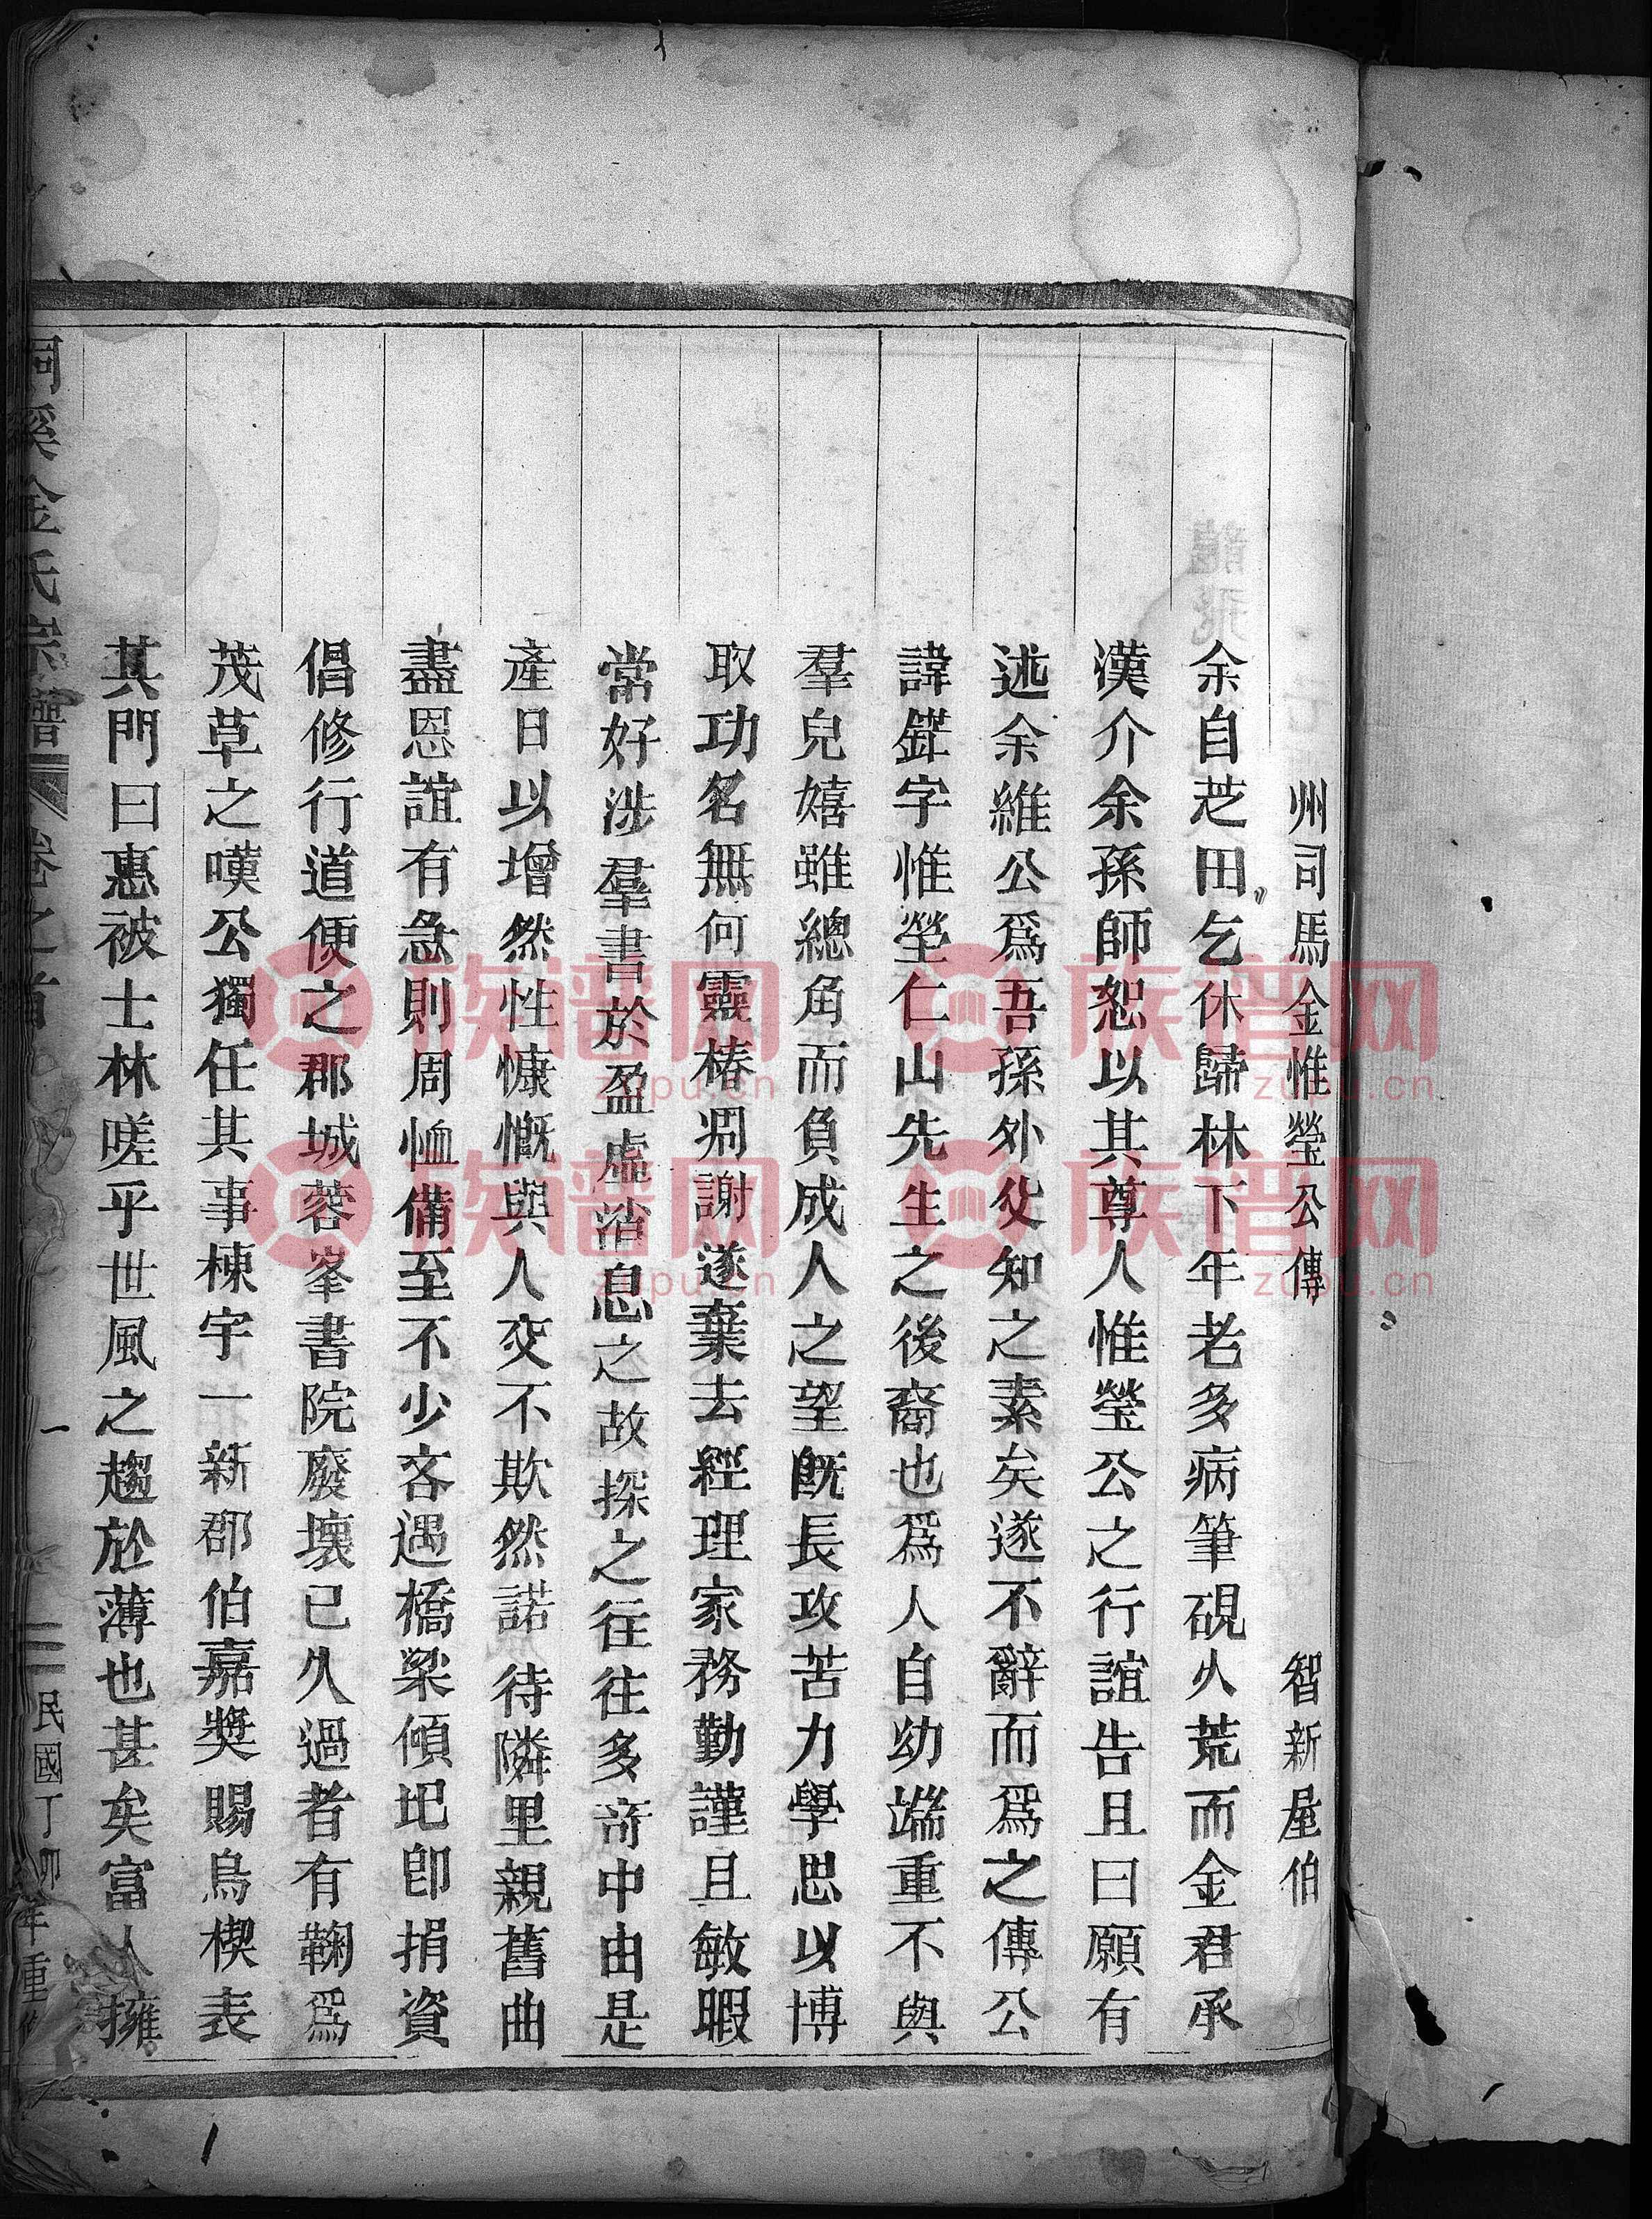 州司馬金惟瑩公傳　智新屋伯
余自芝田乞休歸林下年老多病筆硯久荒而金君承
漢介余孫師恕以其尊人惟瑩公之行誼告且曰願有
述余維公爲吾孫外父知之素矣遂不辭而爲之傳公
諱字惟瑩仁山先生之後裔也爲人自幼端重不與
羣兒嬉雖總角而負成人之望旣長攻苦力學思以博
取功名無何靈椿凋謝遂棄去經理家務勤謹且敏暇
常好涉羣書於盈虛消息之故探之往往多奇中由是
產日以增然性慷慨與人交不欺然諾待隣里親舊曲
盡恩誼有急則周恤備至不少吝遇橋梁傾圮卽捐資
倡修行道便之郡城蓉峯書院廢壞已久過者有鞠爲
茂草之嘆公獨任其事棟宇一新郡伯嘉獎賜烏楔表
其門曰惠被士林嗟乎世風之趨於薄也甚矣富人擁
桐溪金氏宗譜　卷之首　一　民國丁卯年重修
族谱网
zupu.cn
族谱网
zupu.cn
族谱网
zupu.cn
族谱网
zupu.cn